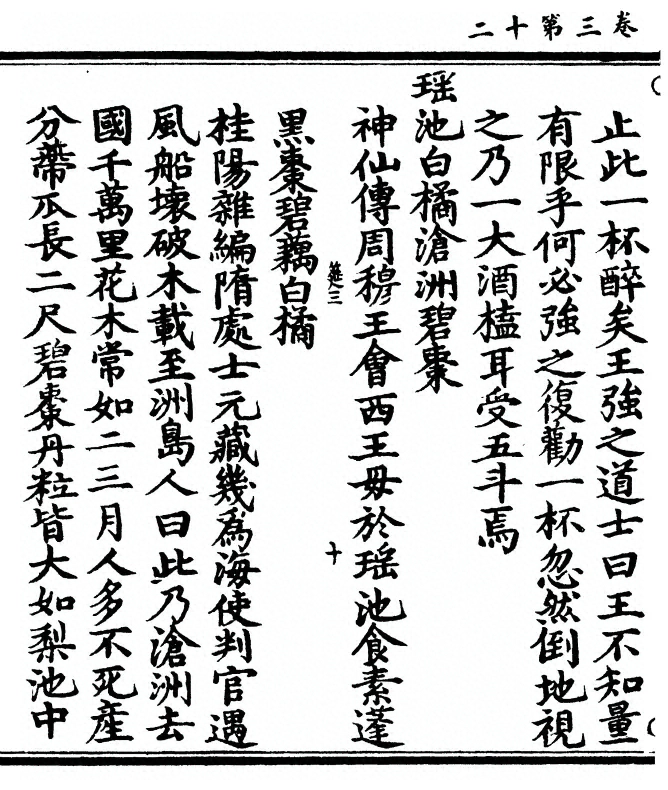 卷三第十二
止此一杯醉矣王強之道士曰王不知量
有限乎何必強之復勸一杯忽然倒地視
之乃一大酒榼耳受五斗焉
瑶池白橘滄洲碧棗
神仙傳周穆王會西王母於瑶池食素蓮
黑棗碧藕白橘
桂陽雜編隋處士元藏幾為海使判官遇
風船壞破木載至洲島人曰此乃滄洲去
國千萬里花木常如二三月人多不死産
分蔕瓜長二尺碧棗丹粒皆大如梨池中